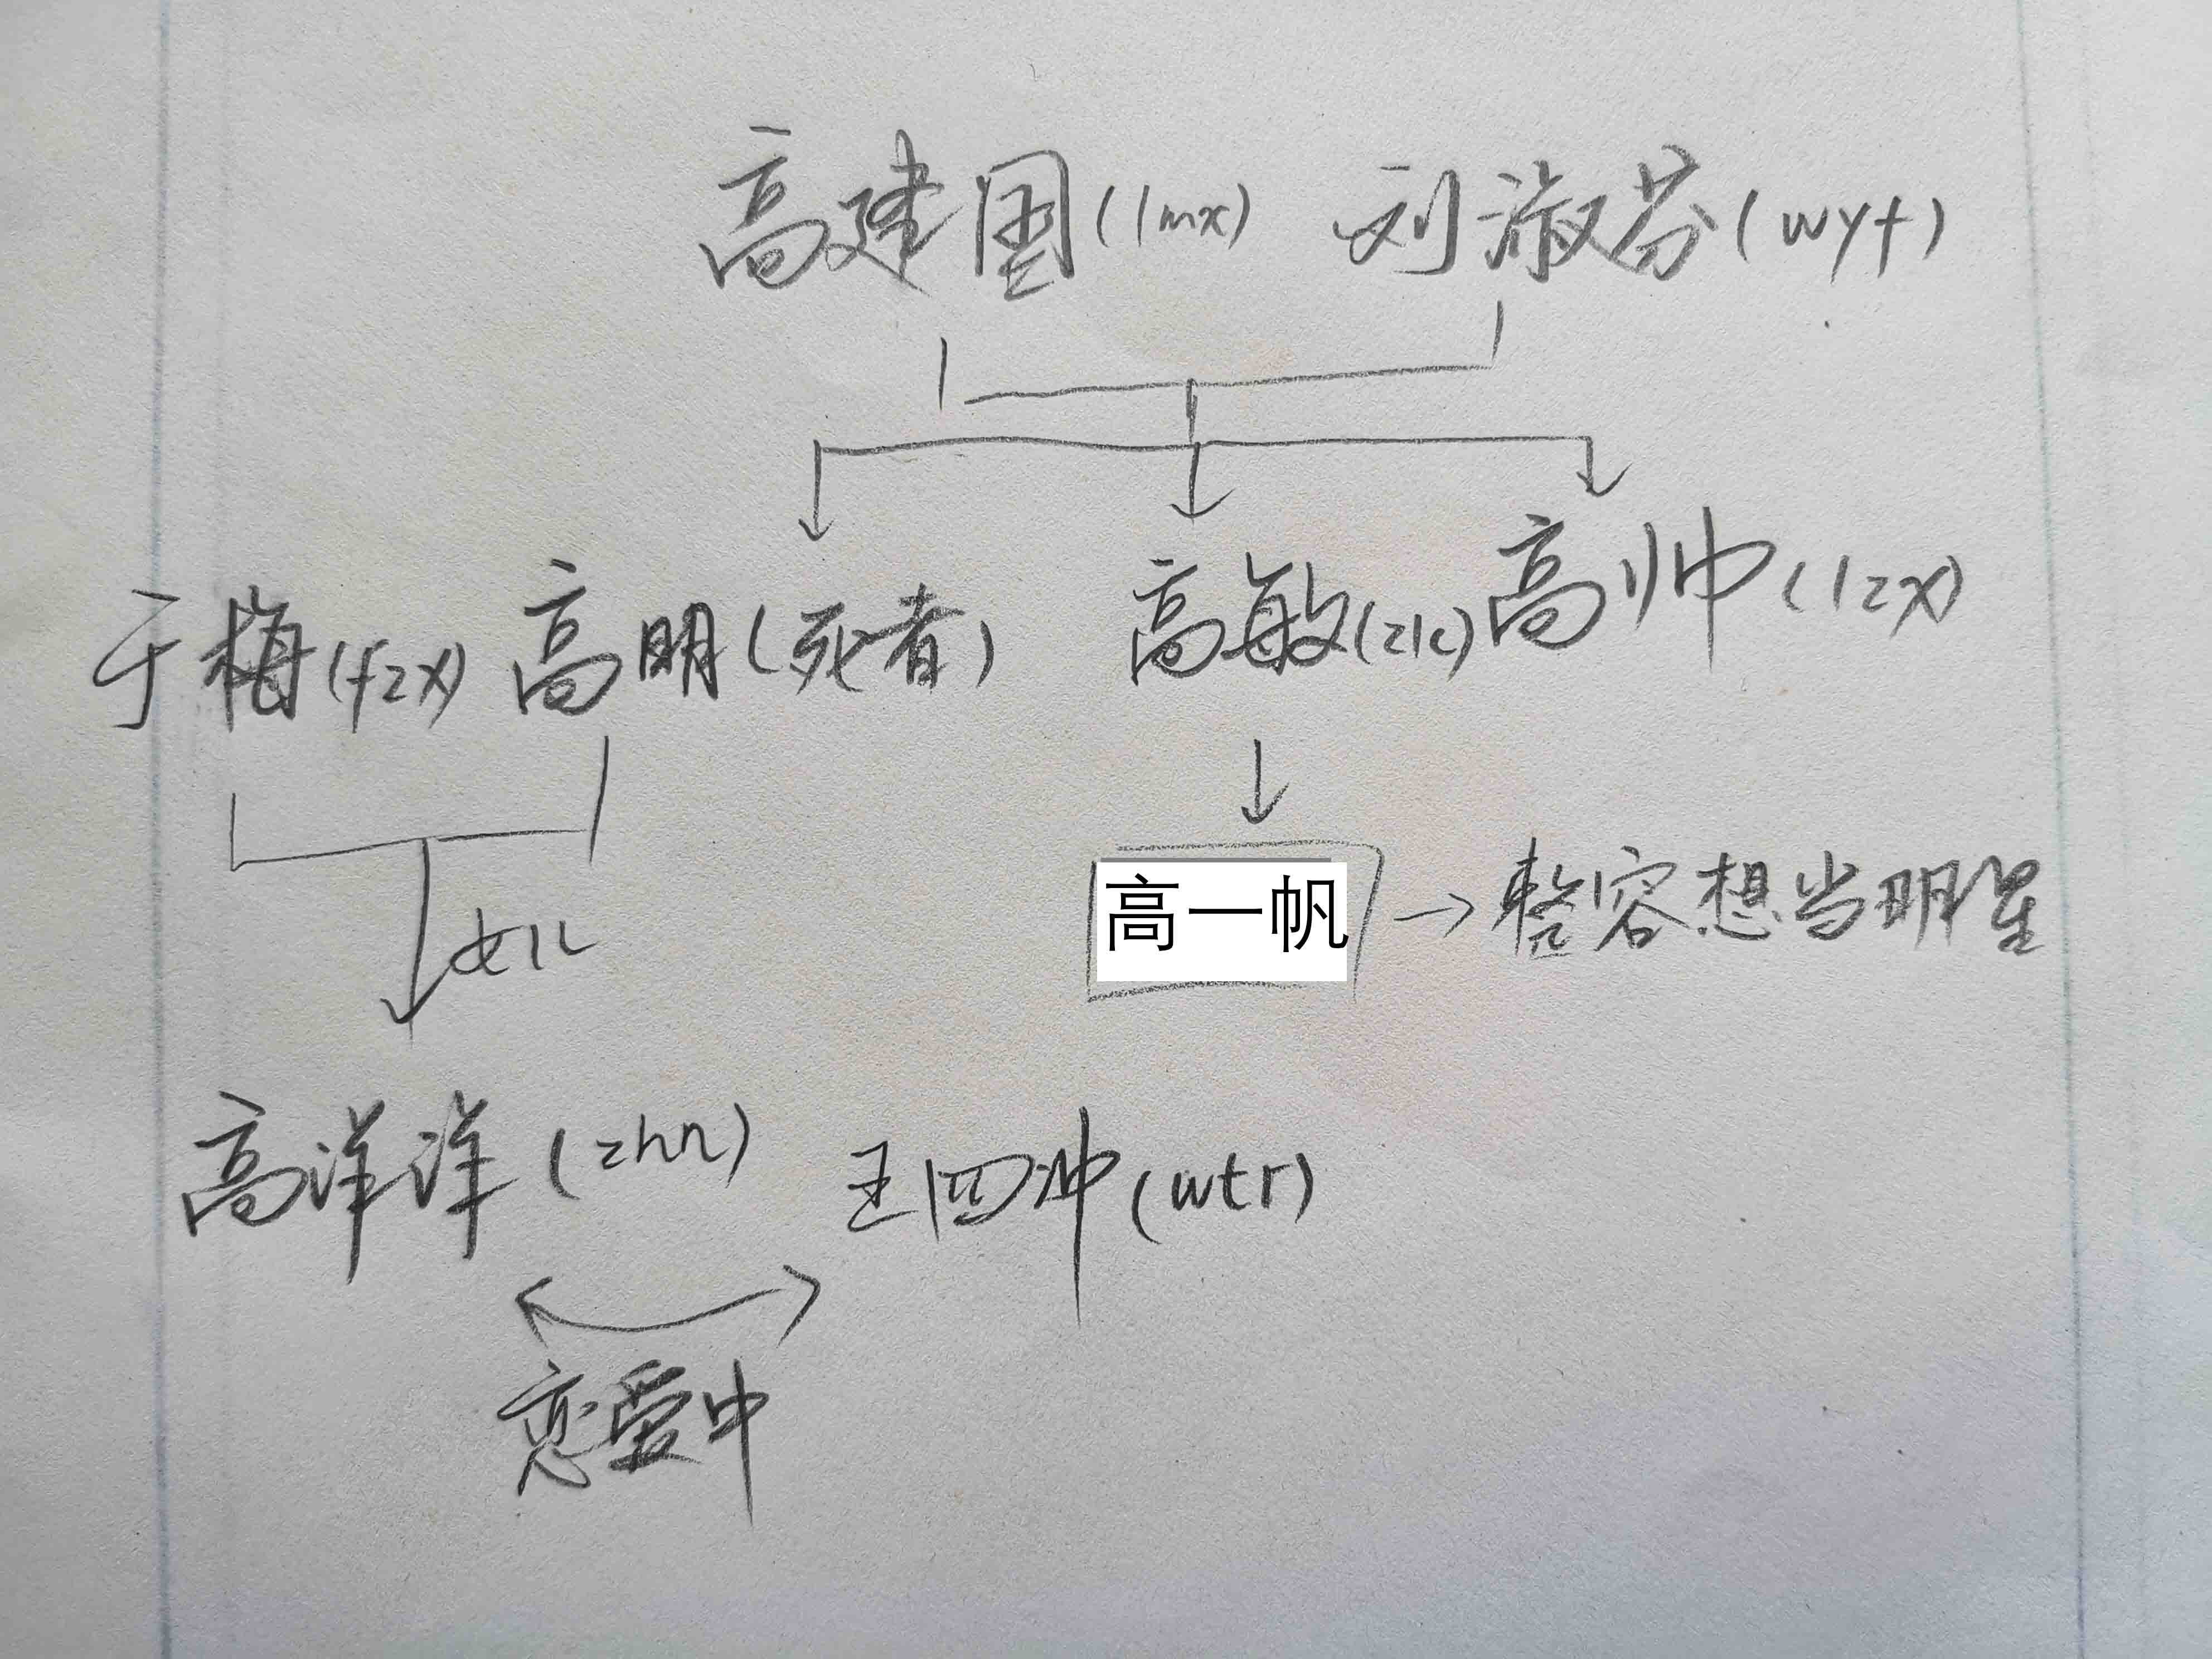 高建国(lmx) 刘淑芬(wyf)
于梅(fzx) 高明(死者) 高敏(zlc) 高帅(lzx)
高一帆 → 整容想当明星
女儿
高洋洋(zhn) 王四冲(wtr)
恋爱中